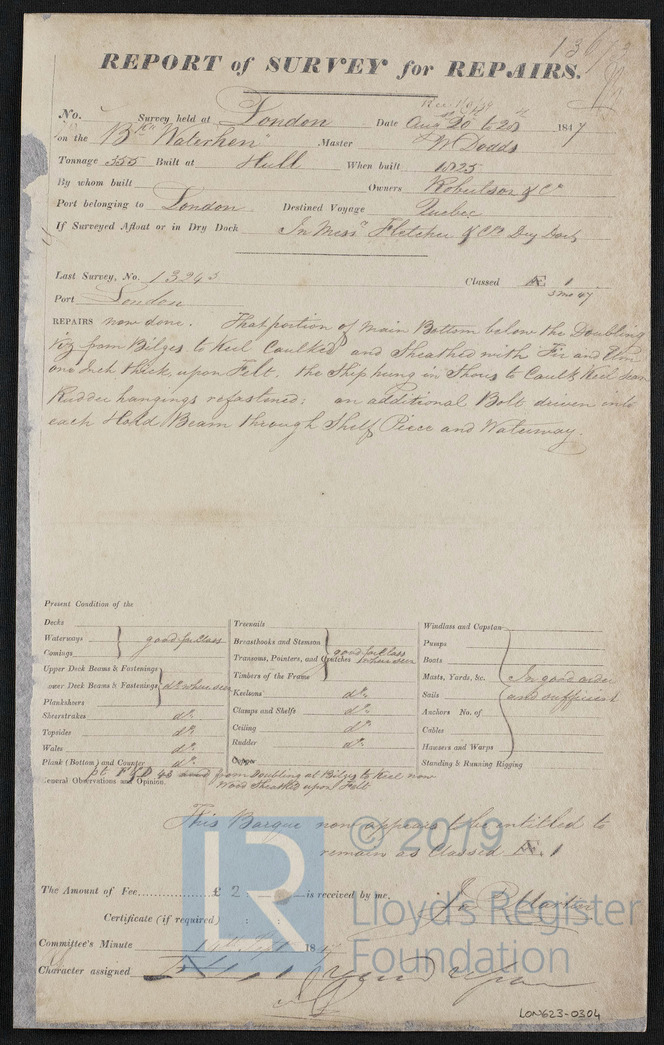 REPORT of SURVEY for REPAIRS.
No. Survey held at London Date Aug 20 to 28 1847
on the Bque "Waterhen" Master W Dodds
Tonnage 355 Built at Hull When built 1825
By whom built Owners Robertson & Co
Port belonging to London Destined Voyage Quebec
If Surveyed Afloat or in Dry Dock In Messrs Fletcher & Co's Dry Dock
Last Survey, No. 13243 Classed Æ 1
3 mo 47
Port London
REPAIRS now done. That portion of Main Bottom below the Doubling
viz from Bilges to Keel Caulked and Sheathed with Fir and Elm
one Inch thick upon Felt. the Ship hung in Shores to Caulk Keel
Rudder hangings refastened: an additional Bolt driven into
each Hold Beam through Shelf Piece and Waterway.
Present Condition of the
Decks
Waterways good for Class
Comings
Upper Deck Beams & Fastenings
Lower Deck Beams & Fastenings do where seen
Planksheers
Sheerstrakes do
Topsides do
Wales do
Plank (Bottom) and Counter do
Treenails
Breasthooks and Stemson good for Class
Transoms, Pointers, and Crutches where seen
Timbers of the Frame
Keelsons do
Clamps and Shelfs do
Ceiling do
Rudder do
Copper
Windlass and Capstan
Pumps
Boats
Masts, Yards, &c. In good order
Sails and sufficient
Anchors No. of
Cables
Hawsers and Warps
Standing & Running Rigging
General Observations and Opinion. pt 45 from Doubling at Bilges to Keel now
Wood Sheathed upon Felt
This Barque now appears to be entitled to
remain as Classed Æ 1
The Amount of Fee £ 2 is received by me,
Certificate (if required)
Committee's Minute Sept 1847
Character assigned
© 2019
LR
Lloyd's Register
Foundation
LON623-0304